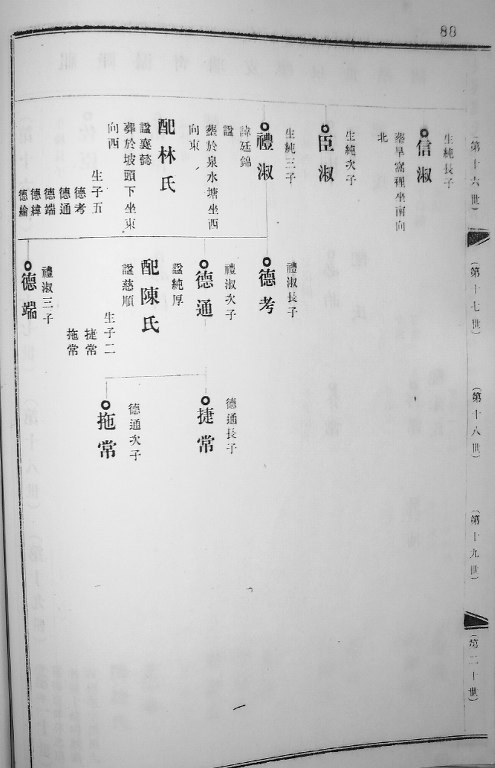 88
(第十六世)
(第十七世)
(第十八世)
(第十九世)
(第二十世)
生純長子
信淑
葬旱窩裡坐南向
北
生純次子
臣淑
生純三子
禮淑
諱廷錦
諡
葬於泉水塘坐西
向東
配林氏
諡襄懿
葬於坡頭下坐東
向西
生子五
德考
德通
德端
德緯
德綸
禮淑長子
德考
禮淑次子
德通
諡純厚
配陳氏
諡慈順
生子二
捷常
拖常
禮淑三子
德端
德通長子
捷常
德通次子
拖常